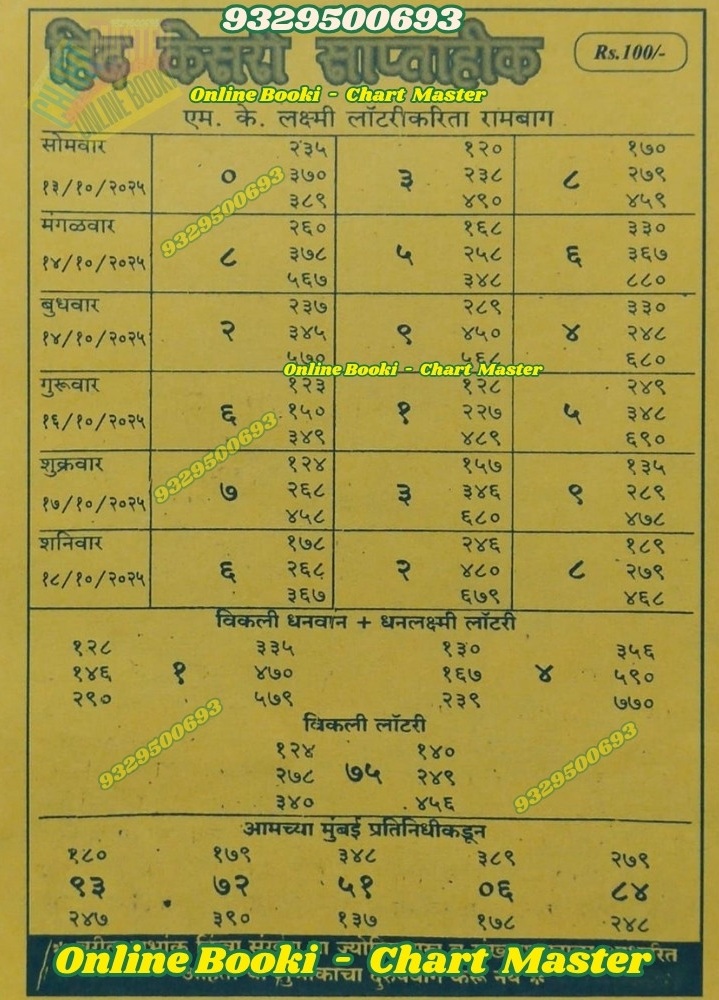 9329500693
हिंद केसरी साप्ताहीक
Rs.100/-
Online Booki - Chart Master
एम. के. लक्ष्मी लॉटरीकरिता रामबाग
सोमवार २३५ १२० १७०
१३/१०/२०२५ ० ३७० ३ २३८ ८ २७९
३८९ ४९० ४५९
9329500693
मंगळवार २६० १६८ ३३०
१४/१०/२०२५ ८ ३७८ ५ २५८ ६ ३६७
५६७ ३४८ ८८०
बुधवार २३७ २८९ ३३०
१४/१०/२०२५ २ ३४५ ९ ४५० ४ २४८
५७० ५६८ ६८०
Online Booki - Chart Master
गुरूवार १२३ १२८ २४९
१६/१०/२०२५ ६ १५० १ २२७ ५ ३४८
३४९ ४८९ ६९०
9329500693
शुक्रवार १२४ १५७ १३५
१७/१०/२०२५ ७ २६८ ३ ३४६ ९ २८९
४५८ ६८० ४७८
शनिवार १७८ २४६ १८९
१८/१०/२०२५ ६ २६८ २ ४८० ८ २७९
३६७ ६७९ ४६८
विकली धनवान + धनलक्ष्मी लॉटरी
१२८ ३३५ १३० ३५६
१४६ १ ४७० १६७ ४ ५९०
२९० ५७९ २३९ ७७०
विकली लॉटरी
9329500693
9329500693
१२४ १४०
२७८ ७५ २४९
३४० ४५६
आमच्या मुंबई प्रतिनिधीकडून
१८० १७९ ३४८ ३८९ २७९
९३ ७२ ५१ ०६ ८४
२४७ ३९० १३७ १७८ २४८
Online Booki - Chart Master